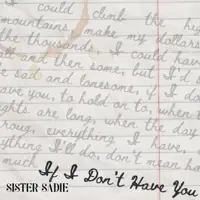 I could climb the hig
mountains, make my dollars
the thousands, I could have
and then some, but I'd
be sad and lonesome, if I do
have you, to hold on to, when t
nights are long, when the day
roug, everything I have,
ything I'll do, don't mean ha
much
If I Don't Have You
SISTER SADIE